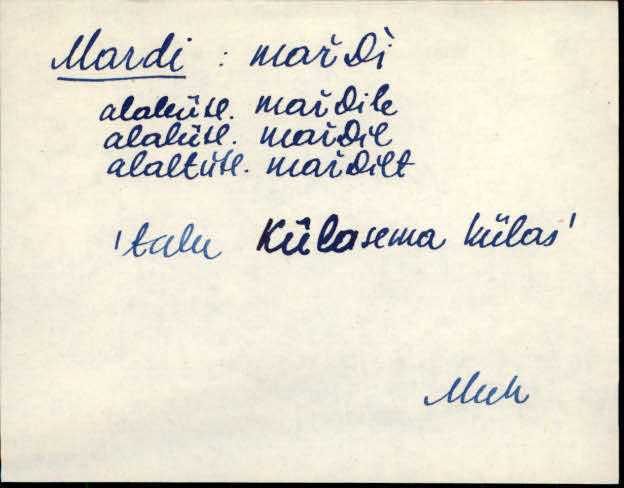 Mardi : mařDì
alaleütl. mařDile
alalütl. mařDil
alaltütl. mařDilt
'talu Külasema külas'
Muh